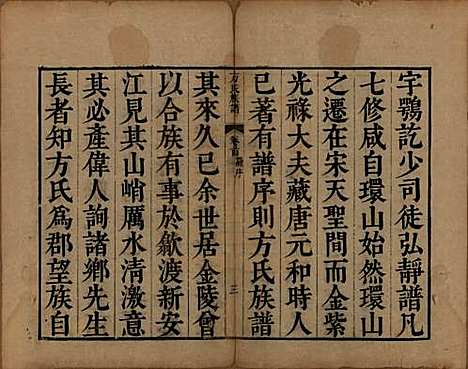 字鶚訖少司徒弘靜譜凡
七修咸自環山始然環山
之遷在宋天聖間而金紫
光祿大夫藏唐元和時人
已著有譜序則方氏族譜
方氏族譜
卷首
序
三
其來久已余世居金陵曾
以合族有事於歙渡新安
江見其山峭厲水清激意
其必產偉人詢諸鄉先生
長者知方氏為郡望族自